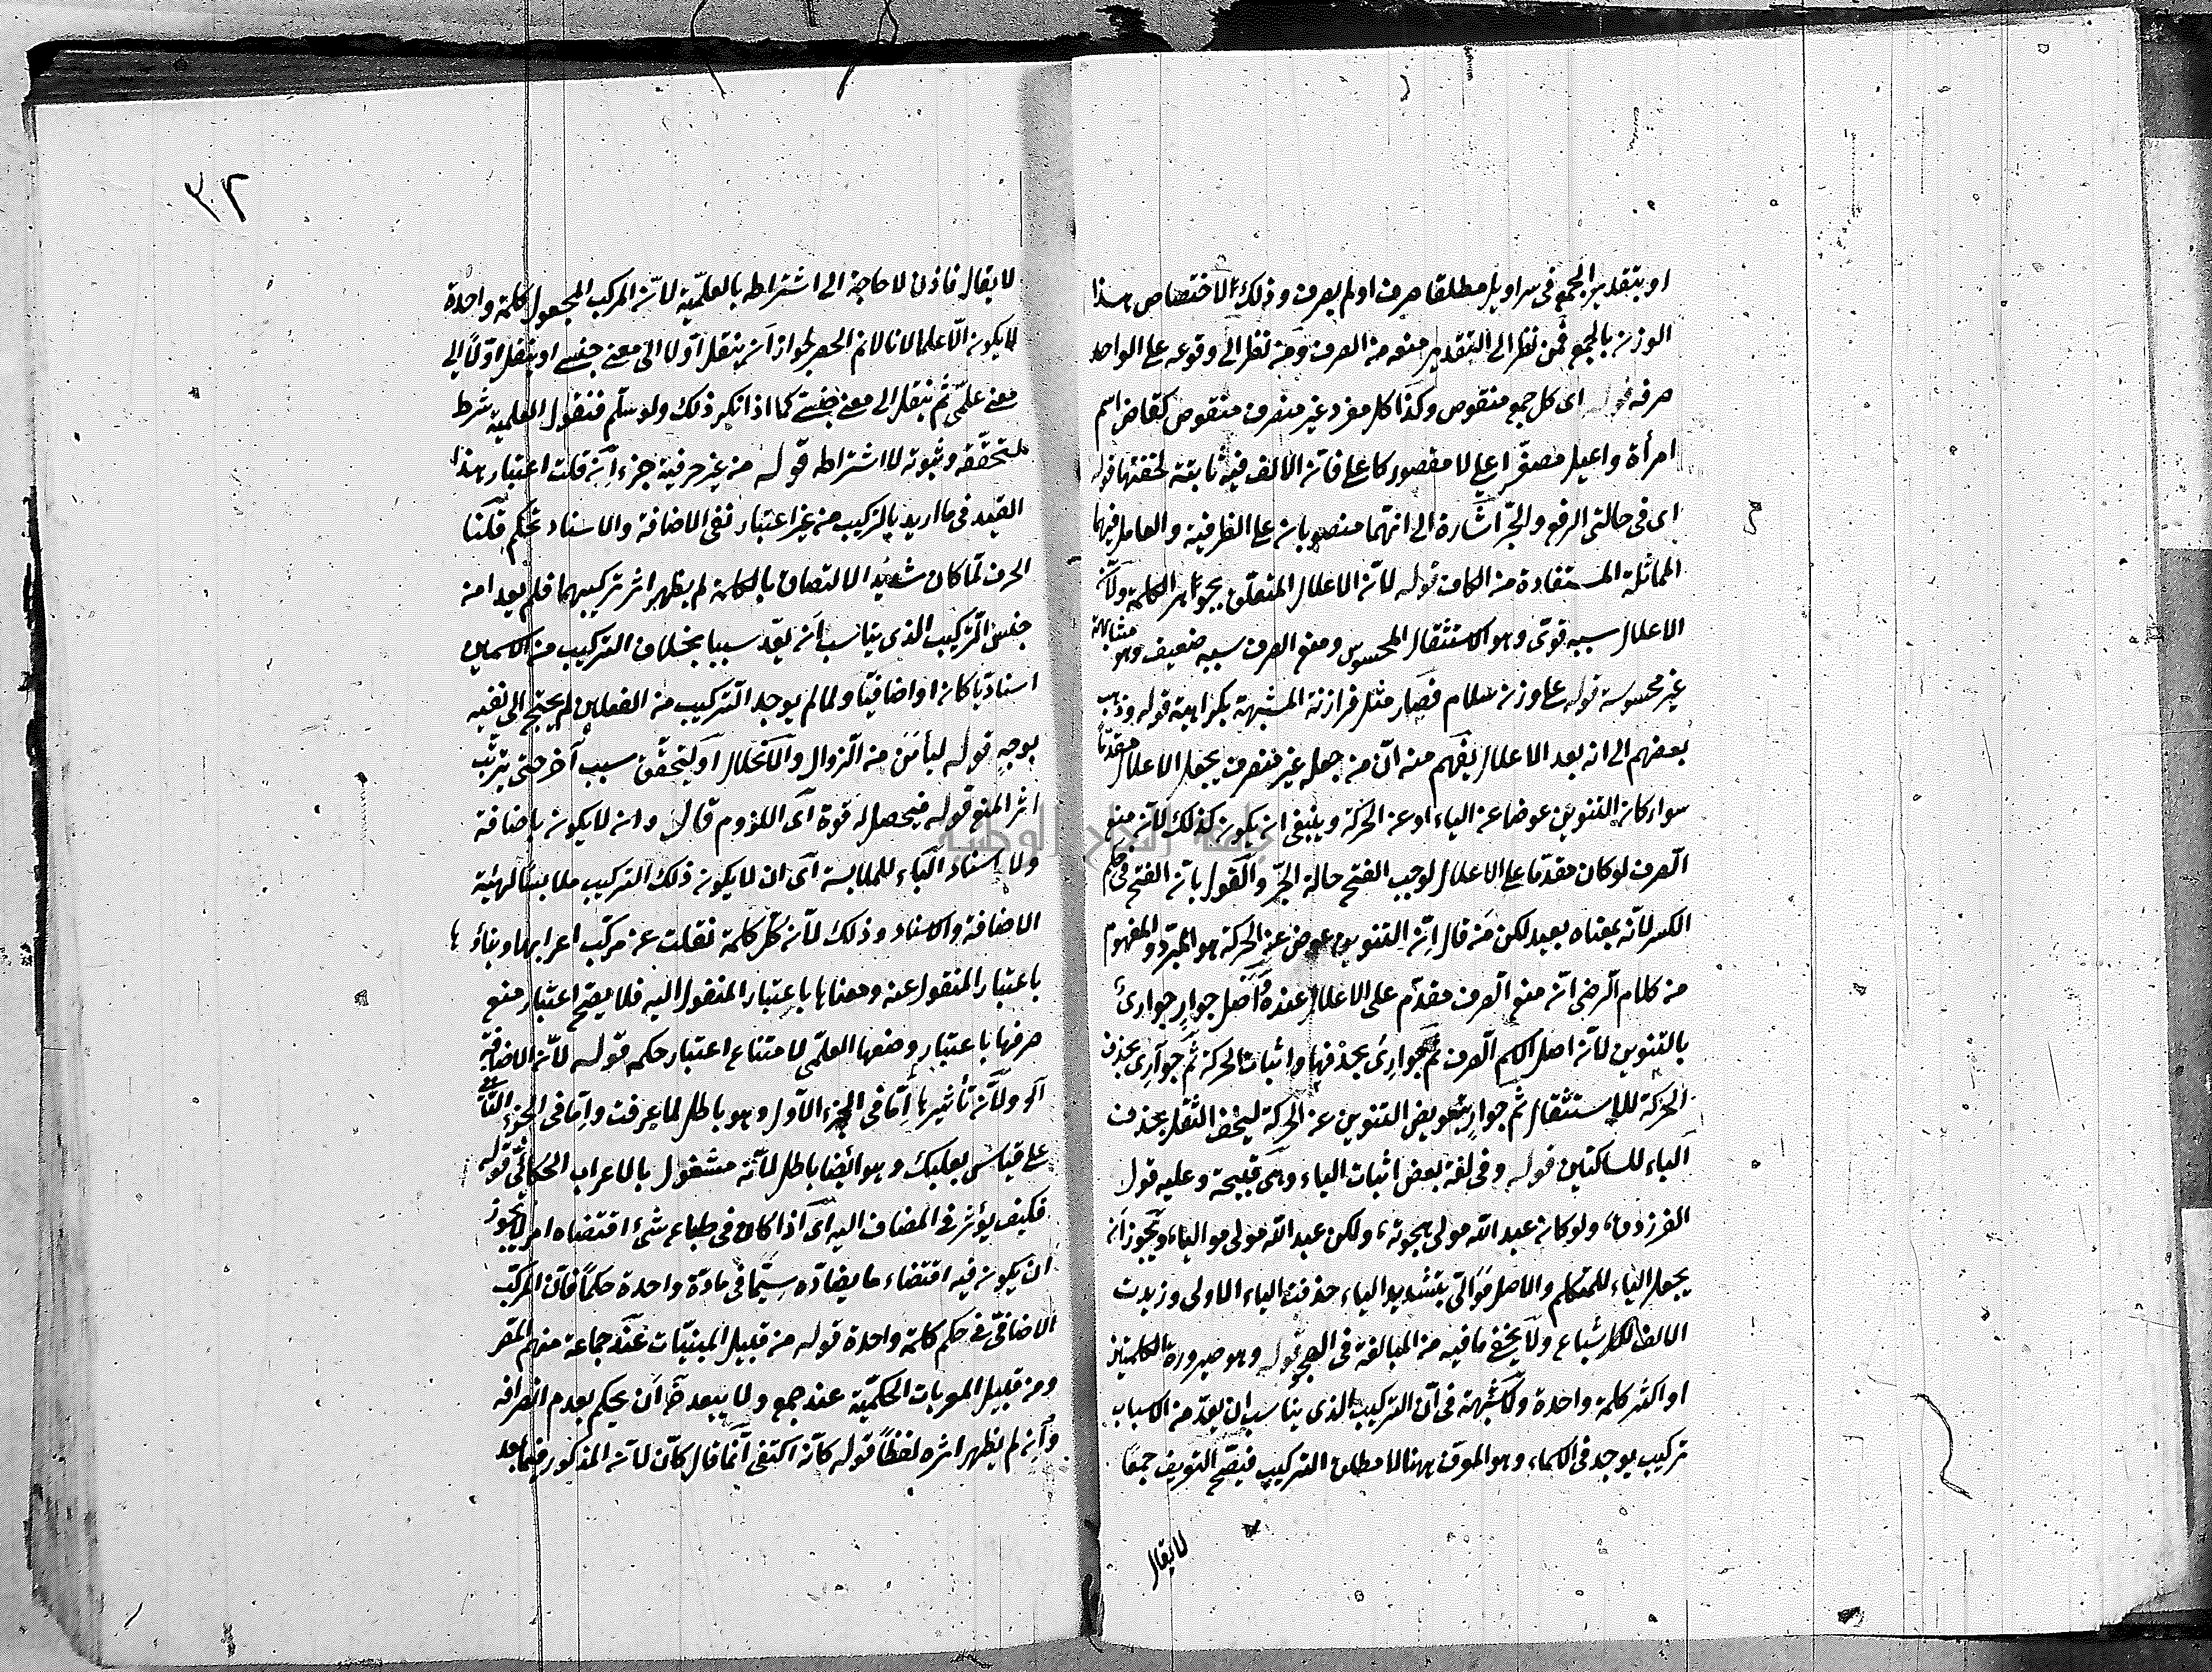 او بتقدير الجمع فى سراويل مطلقا صرف او لم يصرف وذلك لاختصاص هذا
الوزن بالجمع فمن نظر الى التقدير منعه من الصرف ومن نظر الى وقوعه على الواحد
صرفه قوله اى كل جمع منقوص وكذا كل مفرد غير منصرف منقوص كقاض اسم
امرأة واعيل مصغر اعلى لا مقصور كاعلى فان الالف فيه ثابتة لخفتها قوله
اى فى حالتى الرفع والجر اشارة الى انهما منصوبان على الظرفية والعامل فيهما
المماثلة المستفادة من الكاف قوله لان الاعلال المتعلق بجواهر الكلمة ولان
الاعلال سببه قوى وهو الاستثقال المحسوس ومنع الصرف سببه ضعيف وهو مشابهة
غير محسوسة قوله على وزن سلام فصار مثل فرازنة المشبهة بكراهية قوله وذهب
بعضهم الى انه بعد الاعلال يفهم منه ان من جعله غير منصرف يجعل الاعلال مقدما
سواء كان التنوين عوضا عن الياء او عن الحركة وينبغى ان يكون كذلك لان منع
الصرف لو كان مقدما على الاعلال لوجب الفتح حالة الجر والقول بان الفتح فى حكم
الكسر لانه بمعناه بعيد لكن من قال ان التنوين عوض عن الحركة هو المبرد والمفهوم
من كلام الرضى ان منع الصرف مقدم على الاعلال عنده واصل جوار جوارى
بالتنوين لان اصل الاسم الصرف ثم جوارى بحذفها واثبات الحركة ثم جوارى بحذف
الحركة للاستثقال ثم جوار بتعويض التنوين عن الحركة ليخف الثقل بحذف
الياء للساكنين قوله وفى لغة بعض اثبات الياء وهى قبيحة وعليه قول
الفرزدق ولو كان عبد الله مولى هجوته ولكن عبد الله مولى مواليا ويجوز ان
يجعل الياء للمتكلم والاصل موالى بتشديد الياء حذفت الياء الاولى وزيدت
الالف للاشباع ولا يخفى ما فيه من المبالغة فى الهجو قوله وهو صيرورة كلمتين
او اكثر كلمة واحدة ولا شبهة فى ان التركيب الذى يناسب ان يعد من الاسباب
تركيب يوجد فى الاسماء وهو المعرف ههنا لا مطلق التركيب فيصح التعريف جمعا
لا يقال
٣٢
لا يقال فاذن لا حاجة الى اشتراطه بالعلمية لان المركب المجعول كلمة واحدة
لا يكون الا علما لانا لا نم الحصر لجواز ان ينقل اولا الى معنى جنسى او ينقل اولا الى
معنى علمى ثم ينقل الى معنى جنسى كما اذا نكر ذلك ولو سلم فنقول العلمية شرط
لتحققه وثبوته لا اشتراطه قوله من غير حرفية جزء ان قلت اعتبار هذا
القيد فى ما اريد بالتركيب من غير اعتبار نفى الاضافة والاسناد تحكم قلنا
الحرف لما كان شديد الالتصاق بالكلمة لم يظهر اثر تركيبهما فلم يعدا من
جنس التركيب الذى يناسب ان يعد سببا بخلاف التركيب من الاسمين
اسناديا كان او اضافيا ولما لم يوجد التركيب من الفعلين لم يحتج الى نفيه
بوجه قوله ليأمن من الزوال والانحلال او ليتحقق سبب آخر حتى يترتب
اثر المنع قوله فيحصل له قوة اى اللزوم قال وان لا يكون باضافة
ولا اسناد الباء للملابسة اى ان لا يكون ذلك التركيب ملابسا لهيئة
الاضافة والاسناد وذلك لان كل كلمة نقلت عن مركب اعرابها وبناؤها
باعتبار المنقول عنه ومعناها باعتبار المنقول اليه فلا يصح اعتبار منع
صرفها باعتبار وضعها العلمى لامتناع اعتبار حكمه قوله لان الاضافة
آه ولان تأثيرها اما فى الجزء الاول وهو باطل لما عرفت واما فى الجزء الثانى
على قياس بعلبك وهو ايضا باطل لانه مشغول بالاعراب الحكائى قوله
فكيف يؤثر فى المضاف اليه اى اذا كان فى طباع شئ اقتضاء امر لا يجوز
ان يكون فيه اقتضاء ما يضاده سيما فى مادة واحدة حكما فان المركب
الاضافى فى حكم كلمة واحدة قوله من قبيل المبنيات عند جماعة منهم المصر
ومن قبيل المعربات الحكمية عند جمع ولا يبعد ح ان يحكم بعدم انصرافه
وان لم يظهر اثره لفظا قوله كانه اكتفى انما قال كان لان المذكور فيما بعد